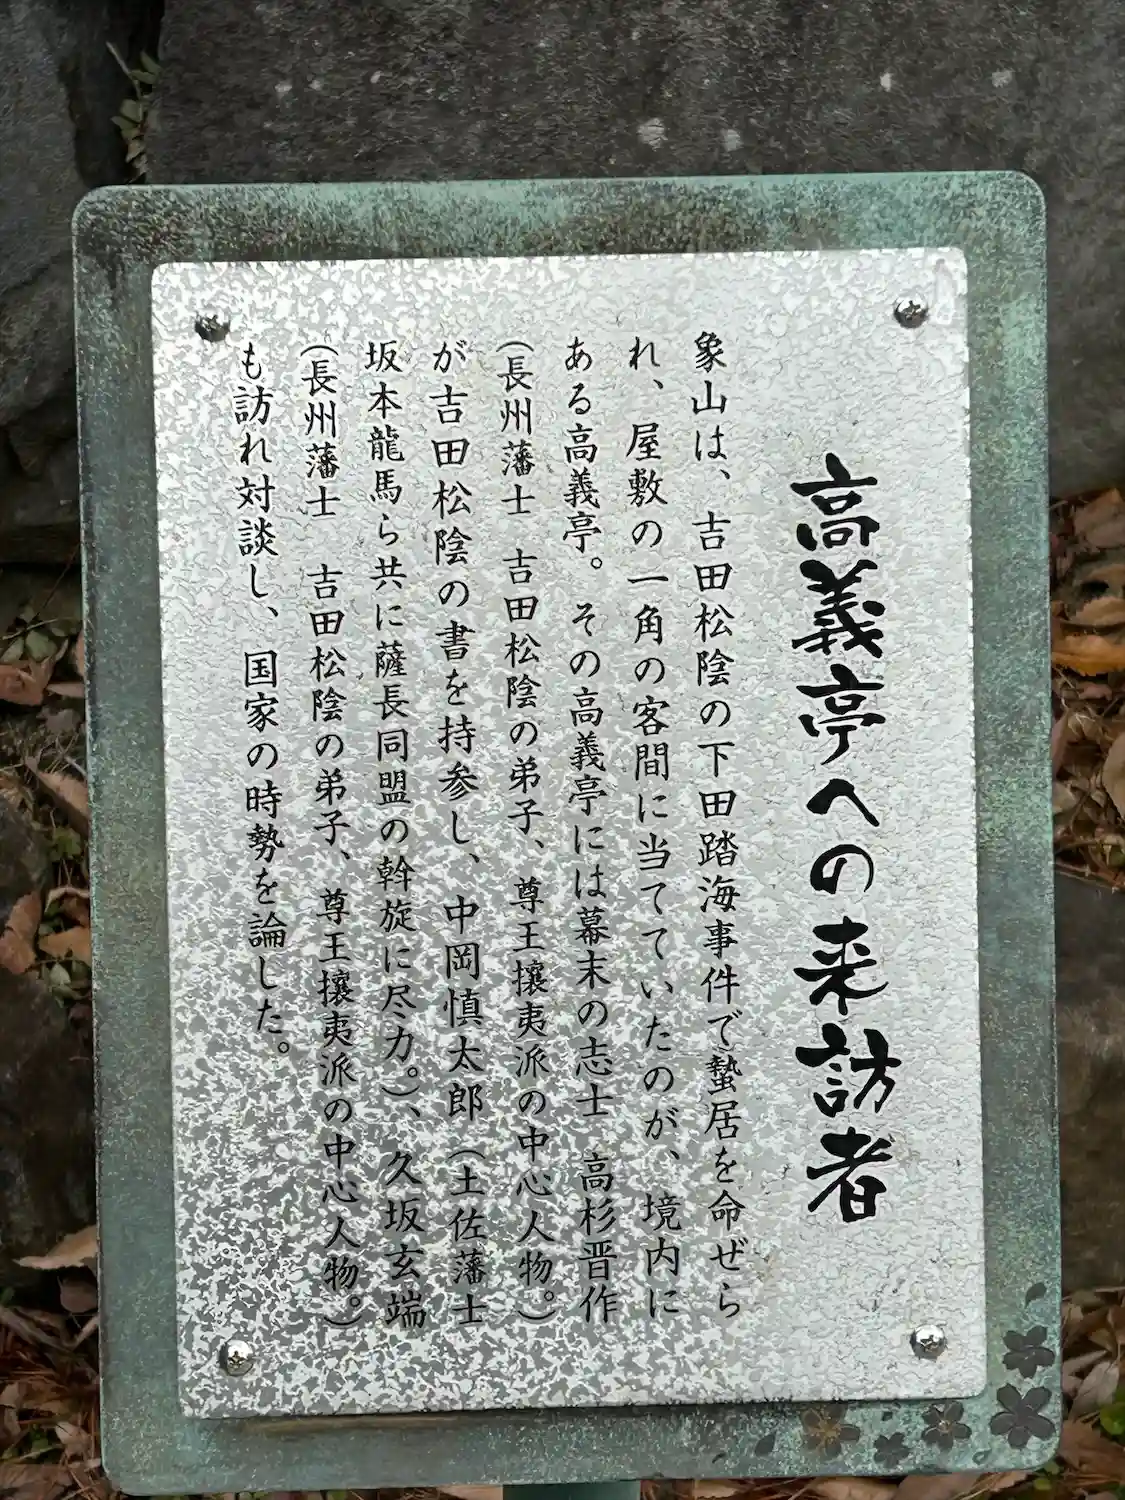 高義亭への来訪者
象山は、吉田松陰の下田踏海事件で蟄居を命ぜら
れ、屋敷の一角の客間に当てていたのが、境内に
ある高義亭。その高義亭には幕末の志士 高杉晋作
（長州藩士 吉田松陰の弟子、尊王攘夷派の中心人物。）
が吉田松陰の書を持参し、中岡慎太郎（土佐藩士
坂本龍馬ら共に薩長同盟の斡旋に尽力。）、久坂玄端
（長州藩士 吉田松陰の弟子、尊王攘夷派の中心人物。）
も訪れ対談し、国家の時勢を論した。